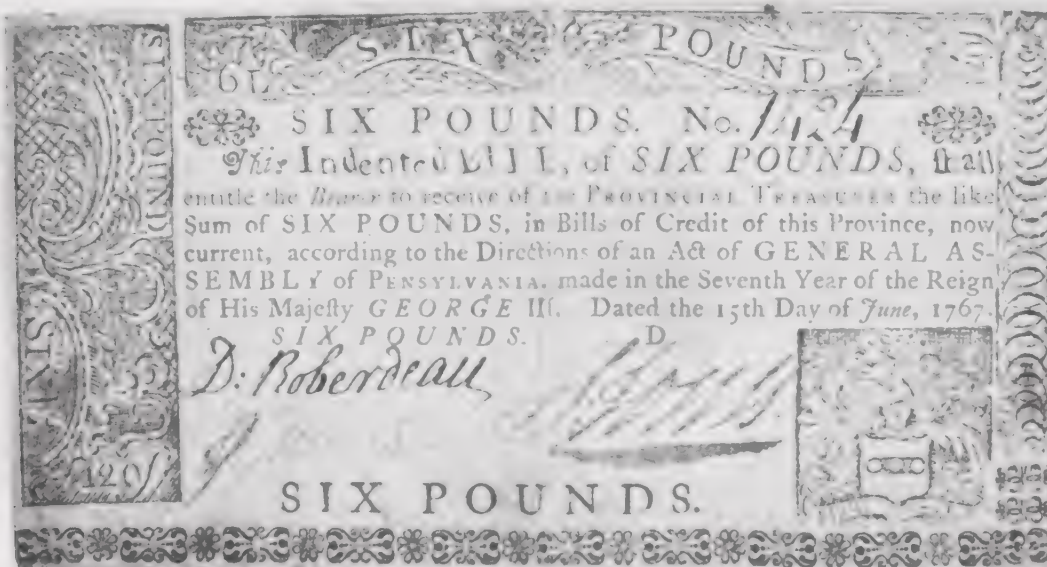 SIX POUNDS
6L
SIX POUNDS. No.
This Indented BILL, of SIX POUNDS, ſhall
entitle the Bearer to receive of the PROVINCIAL TREASURER the like
Sum of SIX POUNDS, in Bills of Credit of this Province, now
current, according to the Directions of an Act of GENERAL AS-
SEMBLY of PENSYLVANIA, made in the Seventh Year of the Reign
of His Majeſty GEORGE III. Dated the 15th Day of June, 1767.
SIX POUNDS. D
D: Roberdeau
SIX POUNDS.
SIX POUND
SIX
120/